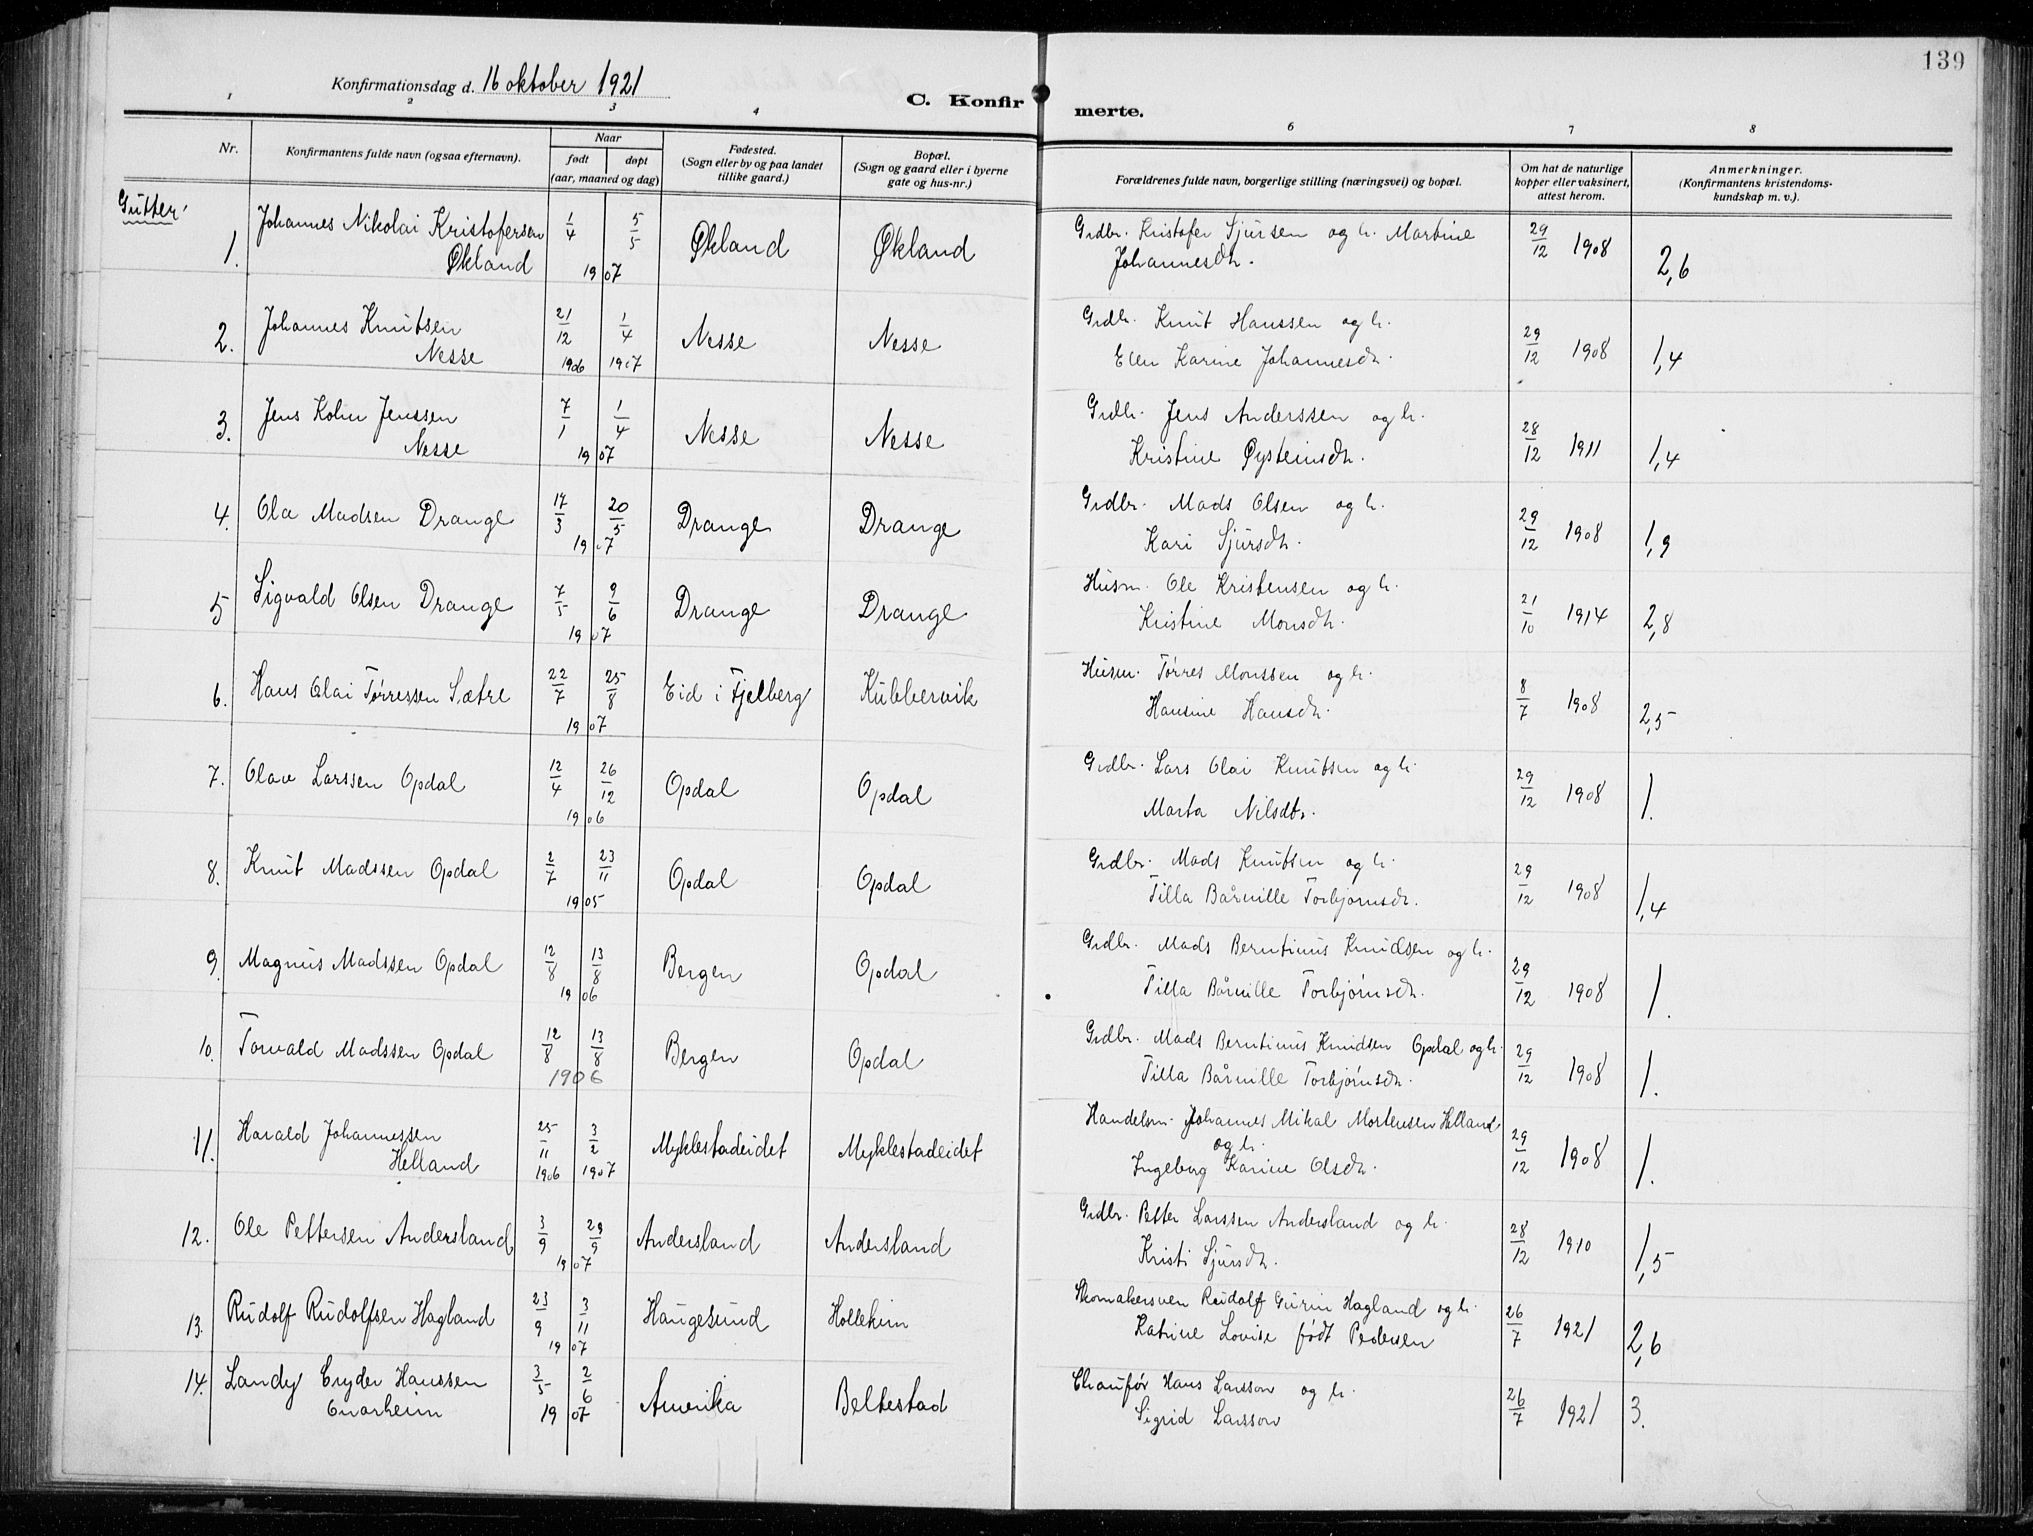 139
Konfirmationsdag d. 16 oktober 1921
C. Konfirmerte.
1 2 3 4 6 7 8
Nr.
Konfirmantens fulde navn (ogsaa efternavn).
Naar
født døpt
(aar, maaned og dag)
Fødested.
(Sogn eller by og paa landet
tillike gaard.)
Bopæl.
(Sogn og gaard eller i byerne
gate og hus-nr.)
Forældrenes fulde navn, borgerlige stilling (næringsvei) og bopæl.
Om hat de naturlige
kopper eller vaksinert,
attest herom.
Anmerkninger.
(Konfirmantens kristendoms-
kundskap m. v.).
Gutter.
1. Johannes Nikolai Kristofersen 1/4 5/5 Økland Økland Grdbr. Kristofer Sjursen og h. Martine 29/12 1908 2,6
Økland 1907 Johannesdtr.
2. Johannes Knutsen 21/12 1/4 Nesse Nesse Grdbr. Knut Hanssen og h. 29/12 1908 1,4
Nesse 1906 1907 Elen Karine Johannesdtr.
3. Jens Kolin Jenssen 7/1 1/4 Nesse Nesse Grdbr. Jens Anderssen og h. 28/12 1911 1,4
Nesse 1907 Kristine Øysteinsdtr.
4. Ola Madsen Drange 17/3 20/5 Drange Drange Grdbr. Mads Olsen og h. 29/12 1908 1,9
1907 Kari Sjursdtr.
5 Sigvald Olsen Drange 7/5 9/6 Drange Drange Husm. Ole Kristensen og h. 21/10 1914 2,8
1907 Kristine Monsdtr.
6. Hans Olai Tørressen Sætre 22/7 25/8 Eid i Fjelberg Kubbervik Husm. Tørres Monssen og h. 8/7 1908 2,5
1907 Hansine Hansdtr.
7. Olav Larssen Opdal 12/4 26/12 Opdal Opdal Grdbr. Lars Olai Knutsen og h. 29/12 1908 1.
1906 Marta Nilsdtr.
8. Knut Madssen Opdal 2/7 23/11 Opdal Opdal Grdbr. Mads Knutsen og h. 29/12 1908 1,4
1905 Tilla Bårnille Torbjørnsdtr.
9. Magnus Madssen Opdal 12/8 13/8 Bergen Opdal Grdbr. Mads Berntinus Knudsen og h. 29/12 1908 1.
1906 Tilla Bårnille Torbjørnsdtr.
10. Torvald Madssen Opdal 12/8 13/8 Bergen Opdal Grdbr. Mads Berntinus Knudsen Opdal og h. 29/12 1908 1.
1906 Tilla Bårnille Torbjørnsdtr.
11. Harald Johannessen 25/11 3/2 Myklestadeidet Myklestadeidet Handelsm. Johannes Mikal Mortensen Helland 29/12 1908 1.
og h.
Helland 1906 1907 Ingeborg Karine Olsdtr.
12. Ole Pettersen Andersland 3/9 29/9 Andersland Andersland Grdbr. Petter Larssen Andersland og h. 28/12 1910 1,5
1907 Kristi Sjursdtr.
13. Rudolf Rudolfsen Hagland 23/9 3/11 Haugesund Holleheim Skomakersven Rudolf Gurin Hagland og h. 26/7 1921 2,6
1907 Katrine Lovise født Pedersen
14. Landy Hanssen 3/5 2/6 Amerika Beltestad Chaufør Hans Larsson og h. 26/7 1921 3.
1907 Sigrid Larsson